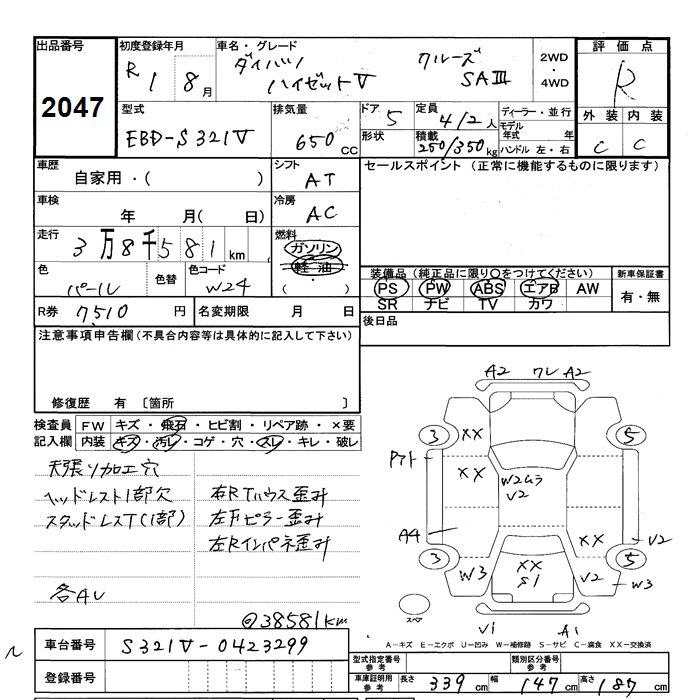 出品番号 初度登録年月 車名・グレード 評価点
2047 R 1 8月 ダイハツ ハイゼットV クルーズ SAIII 2WD ・ 4WD R
型式 排気量 ドア 5 定員 4/2人 ディーラー・並行 外装 内装
EBD-S321V 650 CC 形状 積載 250/350 kg モデル年式 年 ハンドル 左・右 C C
車歴 シフト セールスポイント (正常に機能するものに限ります)
自家用・( ) AT
車検 冷房
年 月( 日) AC
走行 燃料
3万8千581km ガソリン
軽油
色 色替 色コード ( ) 装備品 (純正品に限り○をつけてください) 新車保証書
パール W24 PS PW ABS エアB AW 有・無
SR ナビ TV カワ
R券 7510 円 名変期限 月 日 後日品
注意事項申告欄 (不具合内容等は具体的に記入して下さい)
修復歴 有 〔箇所 〕
検査員 FW キズ・飛石・ヒビ割・リペア跡・×要
記入欄 内装 キズ・汚レ・コゲ・穴・スレ・キレ・破レ
天張リ加工穴
ヘッドレスト1部欠 右RTハウス歪み
スタッドレスT(1部) 左Fピラー歪み
左Rインパネ歪み
各AU
@38581km
A2 ワレ A2
3 XX 5
アト XX W2ムラ
V2
A4 XX V2
3 W3 XX S1 V2 5 W3
スペア V1 A1
A-キズ E-エクボ U-凹み W-補修跡 S-サビ C-腐食 XX-交換済
ル 車台番号 S321V-0423299
登録番号 型式指定番号 参考 類別区分番号 参考
車庫証明用 参考 長さ 339 cm 幅 147 cm 高さ 187 cm